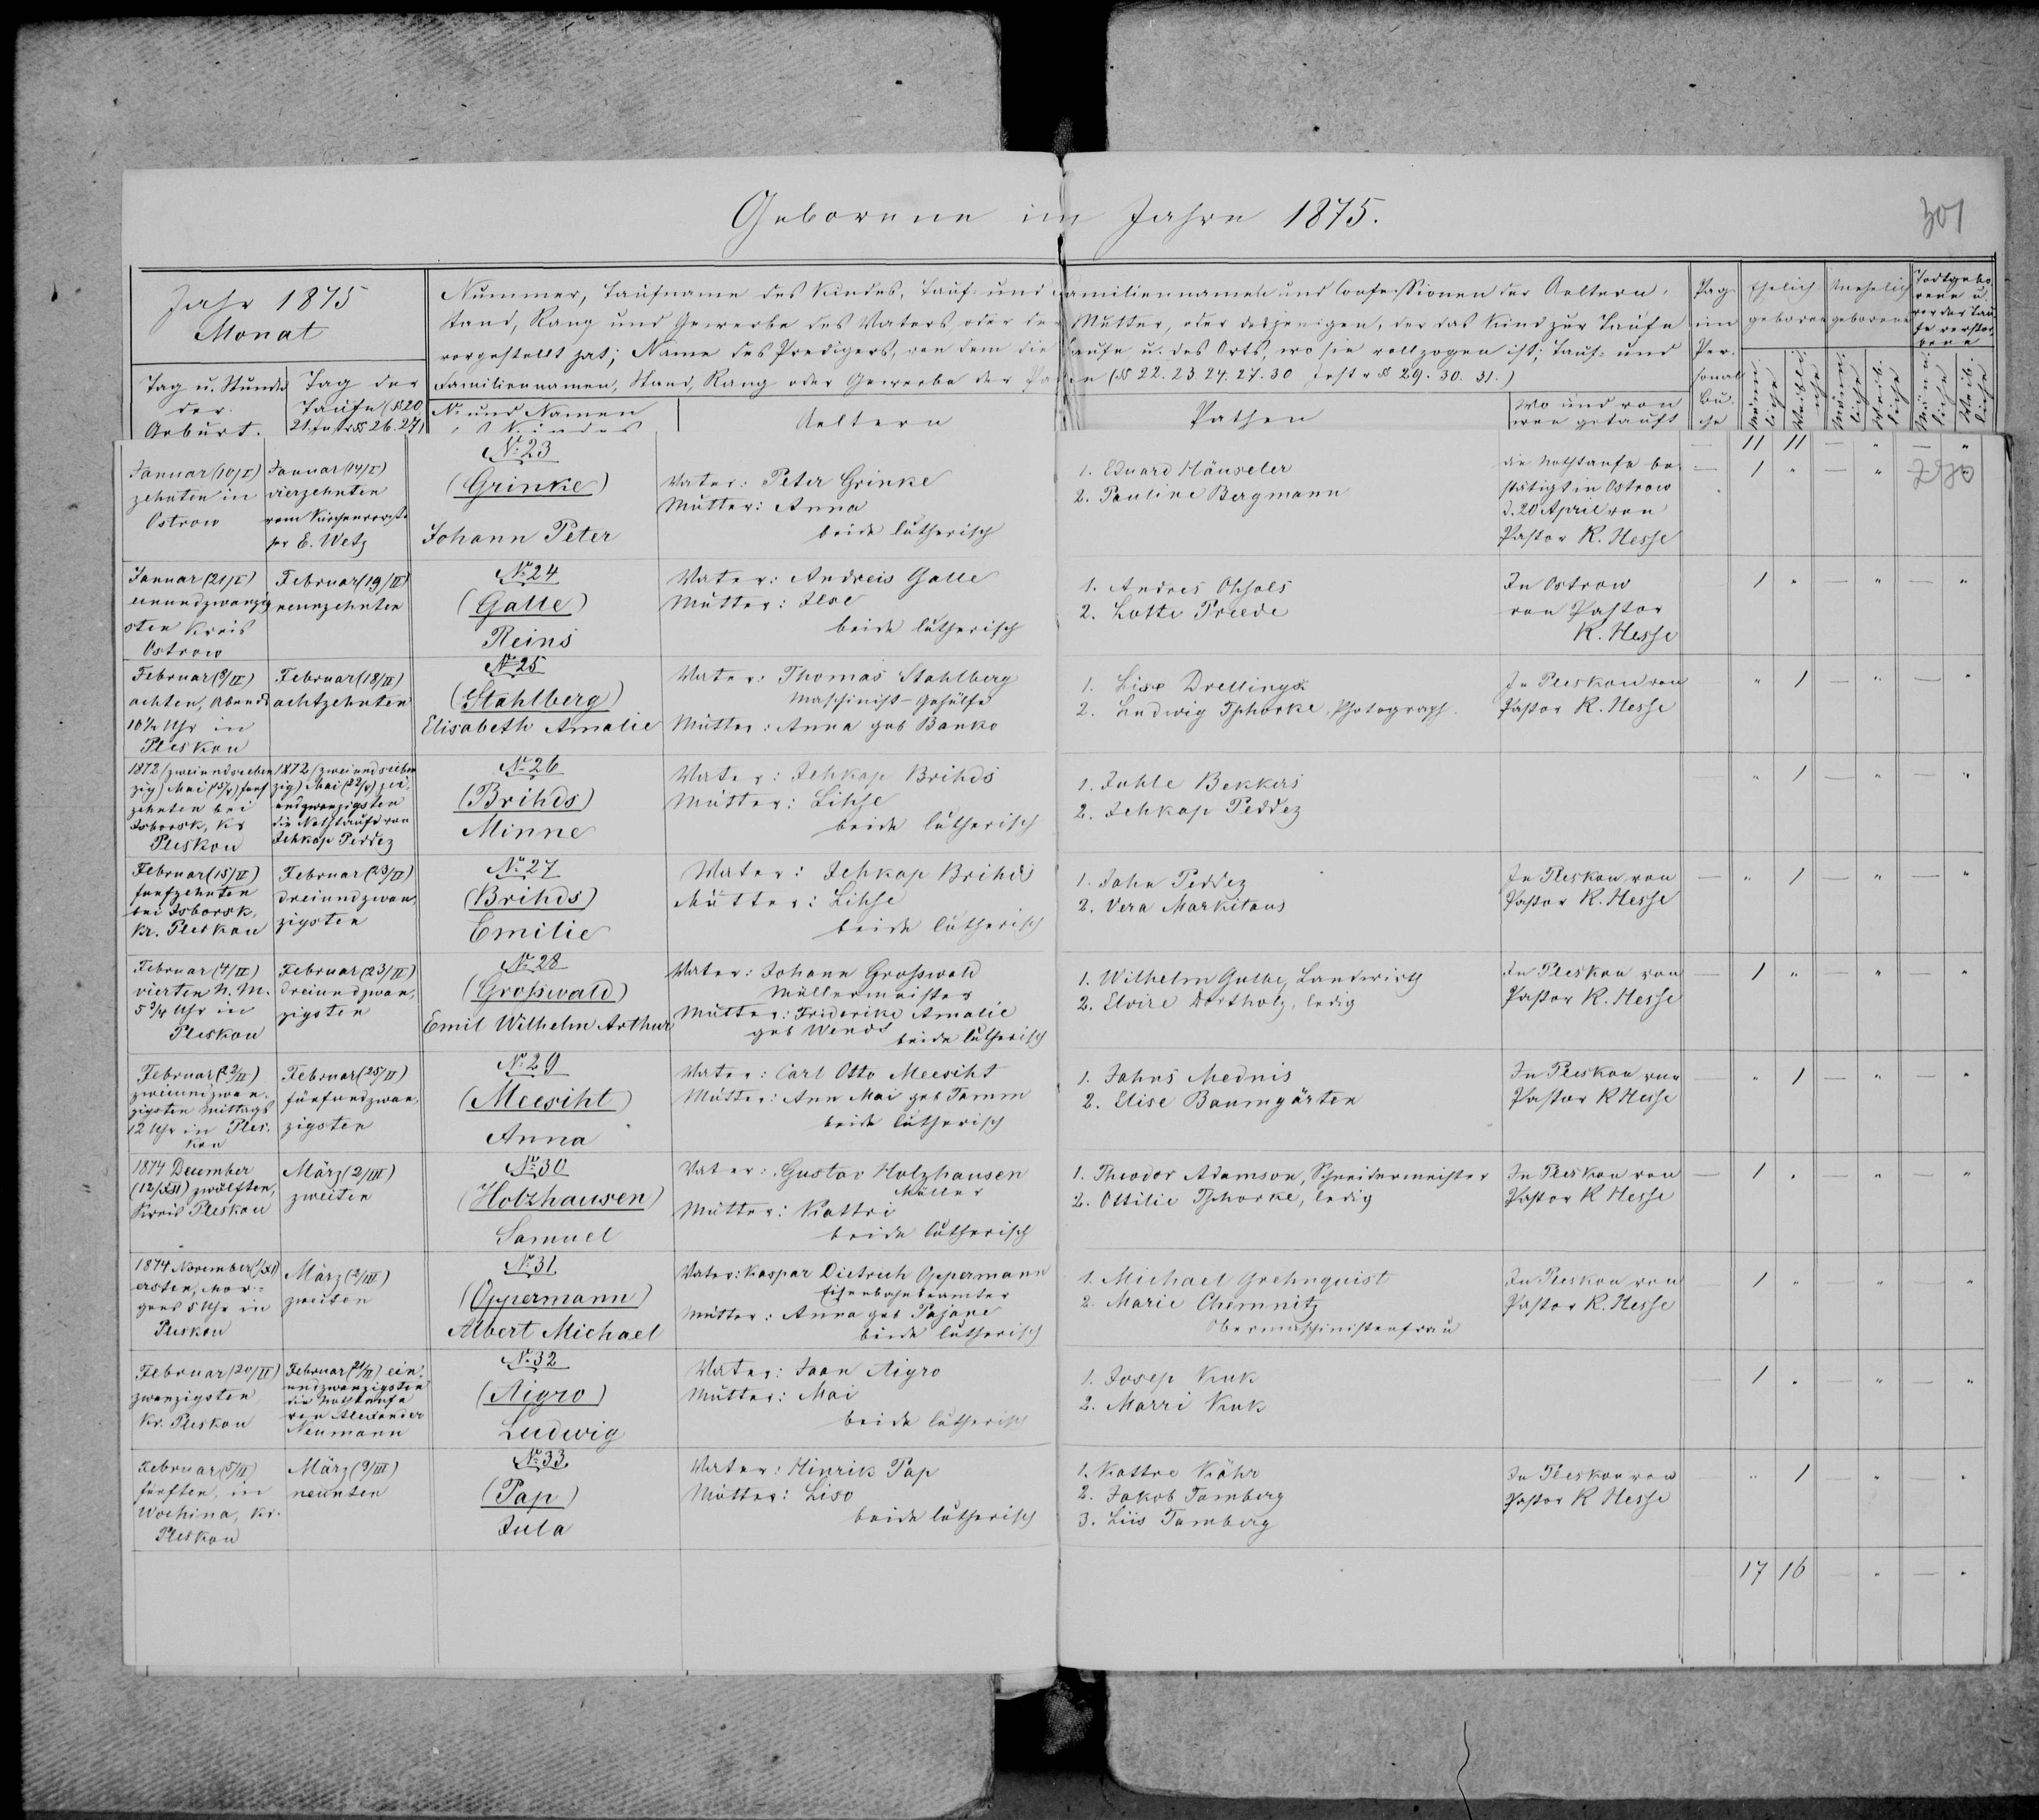 Geborene im Jahre 1875.
301
Jahr 1875
Monat
Tag u. Stunde
der
Geburt.
Tag der
Taufe (§§ 20.
21. Instr. §§ 26. 27)
Nummer, Taufname des Kindes, Tauf- und Familiennamen und Confessionen der Aeltern,
Stand, Rang und Gewerbe des Vaters oder der Mutter, oder desjenigen, der das Kind zur Taufe
vorgestellt hat; Name des Predigers, von dem die Taufe u. des Orts, wo sie vollzogen ist; Tauf- und
Familiennamen, Stand, Rang oder Gewerbe der Pathen (§§ 22. 23. 24. 27. 30 Instr §§ 29. 30. 31.)
No und Namen
Aeltern
Pathen
Wo und von
wem getauft
Pag.
im
Per-
sonal
bu-
che
Ehelich
geboren
Unehelich
geborene
Todtgebo-
rene u.
vor der Tau-
fe verstor-
bene
männ-
liche
Weibli-
che
Männ-
liche
Weib-
liche
Männ-
liche
Weib-
liche
11 11 — " — "
Januar (10/I)
zehnten in
Ostrow
Januar (14/I)
vierzehnten
vom Kirchenvorste-
her E. Wetz
No 23
(Grinke)
Johann Peter
Vater: Peter Grinke
Mutter: Anna
beide lutherisch
1. Eduard Häuseler
2. Pauline Bergmann
die Nothtaufe be-
stätigt in Ostrow
d. 20 April von
Pastor K. Hesse
— 1 " — "
Januar (21/I)
einundzwanzig
sten Kreis
Ostrow
Februar (19/II)
neunzehnten
No 24
(Galle)
Reins
Vater: Andreis Galle
Mutter: Ilse
beide lutherisch
1. Andres Ohsols
2. Lotte Preede
In Ostrow
von Pastor
K. Hesse
— 1 " — " — "
Februar (8/II)
achten, Abends
10½ Uhr in
Pleskau
Februar (18/II)
achtzehnten
No 25
(Stahlberg)
Elisabeth Amalie
Vater: Thomas Stahlberg
Maschinist-Gehülfe
Mutter: Anna geb Banko
1. Lise Drellings
2. Ludwig Tschorke, Photograph.
In Pleskau von
Pastor K. Hesse
— " 1 — " — "
1872 (zweiundsieben
zig) Mai (15/V) fünf
zehnten bei
Isborsk, Kr
Pleskau
1872 (zweiundsieben
zig) Mai (22/V) zwei-
undzwanzigsten
die Nothtaufe von
Jehkap Peddez
No 26
(Brihds)
Minne
Vater: Jehkap Brihds
Mutter: Lihse
beide lutherisch
1. Juhle Bekkers
2. Jehkap Peddez
" 1 — " — "
Februar (15/II)
fünfzehnten
bei Isborsk,
Kr. Pleskau
Februar (23/II)
dreiundzwan-
zigsten
No 27
(Brihds)
Emilie
Vater: Jehkap Brihds
Mutter: Lihse
beide lutherisch
1. Jahn Peddez
2. Vera Markitans
In Pleskau von
Pastor K. Hesse
— " 1 — " — "
Februar (4/II)
vierten N. M.
5¾ Uhr in
Pleskau
Februar (23/II)
dreiundzwan-
zigsten
No 28
(Grosswald)
Emil Wilhelm Arthur
Vater: Johann Grosswald
Müllermeister
Mutter: Friderike Amalie
geb Wends
beide lutherisch
1. Wilhelm Guthe, Landwirth
2. Elvire Dortholz, ledig
In Pleskau von
Pastor K. Hesse
— 1 " — " — "
Februar (22/II)
zweiundzwan-
zigsten Mittags
12 Uhr in Ples-
kau
Februar (25/II)
fünfundzwan-
zigsten
No 29
(Meesiht)
Anna
Vater: Carl Otto Meesiht
Mutter: Ann Mai geb Tamm
beide lutherisch
1. Jahns Mednis
2. Elise Baumgärten
In Pleskau von
Pastor K Hesse
— " 1 — " — "
1874 December
(12/XII) zwölften,
Kreis Pleskau
März (2/III)
zweiten
No 30
(Holzhausen)
Samuel
Vater: Gustav Holzhausen
Müller
Mutter: Kattri
beide lutherisch
1. Theodor Adamson, Schneidermeister
2. Ottilie Tschorke, ledig
In Pleskau von
Pastor K Hesse
— 1 " — " — "
1874 November (1/XI)
ersten, Mor-
gens 5 Uhr in
Pleskau
März (2/III)
zweiten
No 31
(Oppermann)
Albert Michael
Vater: Kaspar Dietrich Oppermann
Eisenbahnbeamter
Mutter: Anna geb Pajane
beide lutherisch
1. Michael Grehnquist
2. Marie Chemnitz
Obermaschinistenfrau
In Pleskau von
Pastor K. Hesse
1 " — " — "
Februar (20/II)
zwanzigsten
Kr. Pleskau
Februar (21/II) ein-
undzwanzigsten
die Nothtaufe
von Alexander
Neumann
No 32
(Aigro)
Ludwig
Vater: Jaan Aigro
Mutter: Mai
beide lutherisch
1. Josep Kuk
2. Marri Kuk
— 1 " — " — "
Februar (5/II)
fünften, in
Wochina, Kr.
Pleskau
März (9/III)
neunten
No 33
(Pap)
Jula
Vater: Hinrik Pap
Mutter: Liso
beide lutherisch
1. Kattre Kähr
2. Jakob Tamberg
3. Liis Tamberg
In Pleskau von
Pastor K Hesse
— " 1 — " — "
— 17 16 — " — "